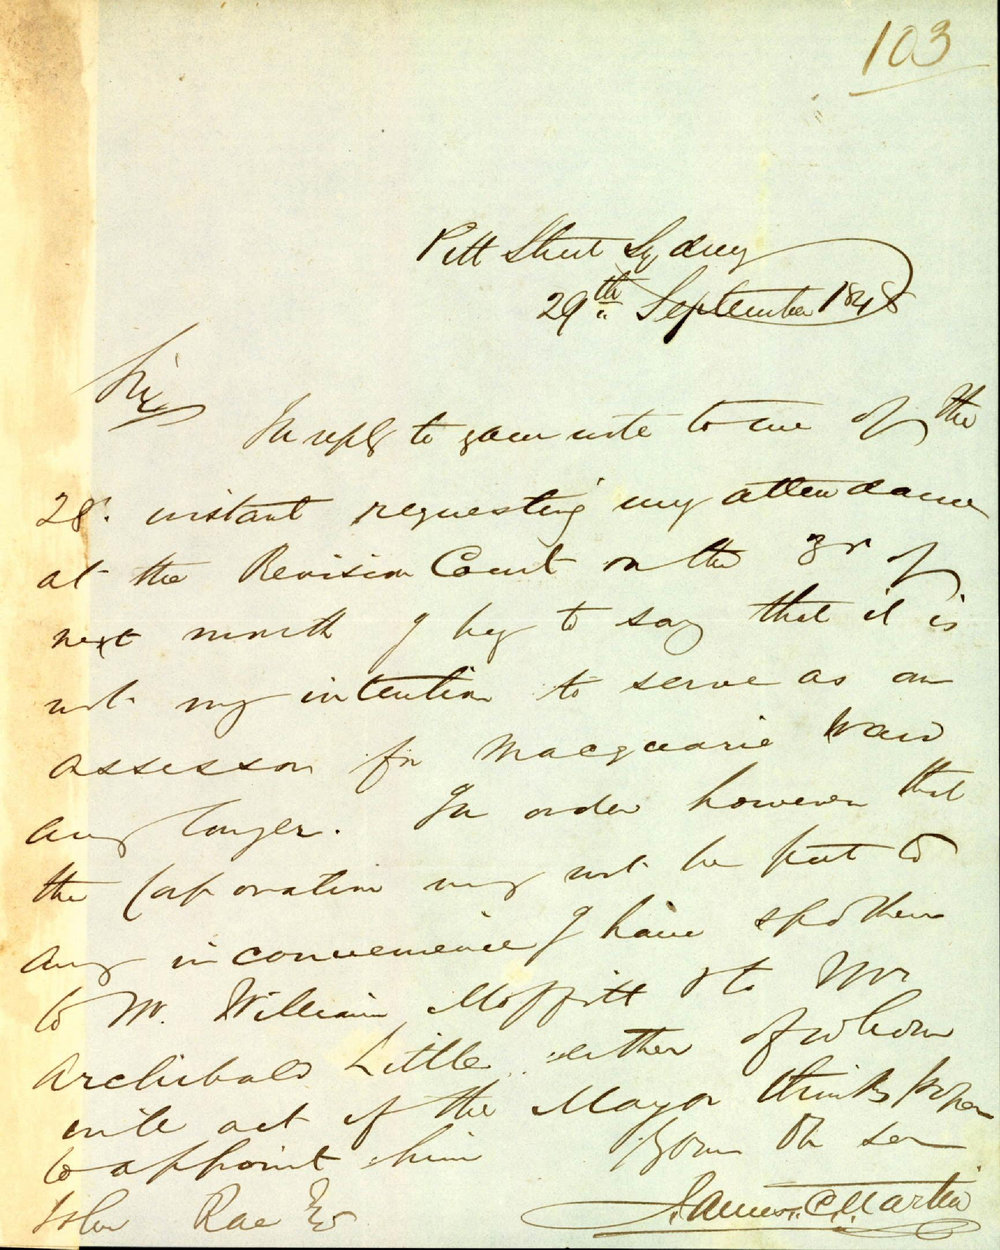 103
Pitt Street Sydney
29th September 1848
Sir
In reply to your note to me of the
28. instant requesting my attendance
at the Revision Court on the 3r of
next month I beg to say that it is
not my intention to serve as an
assessor for Macquarie Ward
any longer. In order however that
the Corporation may not be put to
any inconvenience I have spoken
to Mr. William Moffitt & to Mr
Archibald Little either of whom
will act if the Mayor thinks proper
to appoint him Your Ob ser
John Rae Esr James Martin